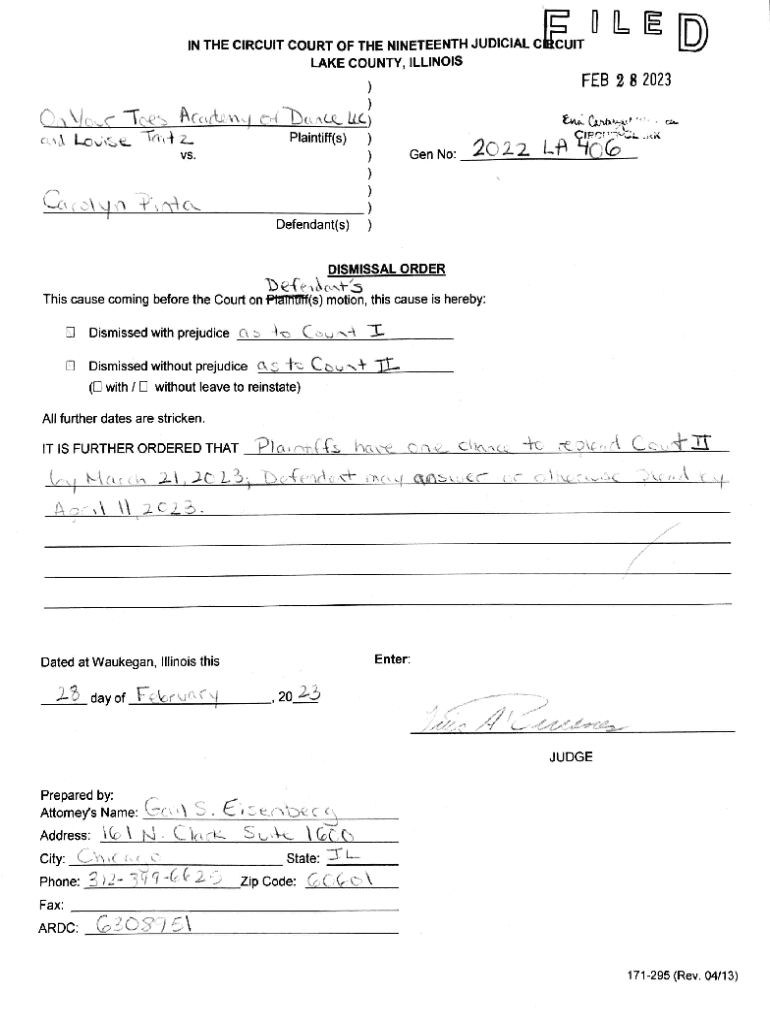 FILED
IN THE CIRCUIT COURT OF THE NINETEENTH JUDICIAL CIRCUIT
LAKE COUNTY, ILLINOIS
FEB 28 2023
On Your Toes Academy of Dance LLC
and Louise Tritz Plaintiff(s)
vs.
CIRCUIT CLERK
Gen No: 2022 LA 406
Carolyn Pinta
Defendant(s)
DISMISSAL ORDER
Defendant's
This cause coming before the Court on Plaintiff(s) motion, this cause is hereby:
☐ Dismissed with prejudice as to Count I
☐ Dismissed without prejudice as to Count II
(☐ with / ☐ without leave to reinstate)
All further dates are stricken.
IT IS FURTHER ORDERED THAT Plaintiffs have one chance to replead Count II
by March 21, 2023; Defendant may answer or otherwise plead by
April 11, 2023.
Dated at Waukegan, Illinois this Enter:
28 day of February, 2023
JUDGE
Prepared by:
Attorney's Name: Gail S. Eisenberg
Address: 161 N. Clark Suite 1600
City: Chicago State: IL
Phone: 312-399-6620 Zip Code: 60601
Fax:
ARDC: 6308951
171-295 (Rev. 04/13)